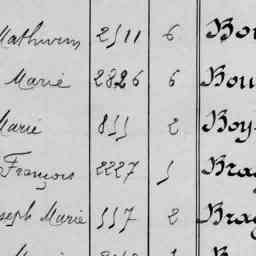 Mathurin 2511 6 Bou
Marie 2826 6 Bou
Marie 855 2 Boy
François 2227 5 Bra
Joseph Marie 557 2 Brag